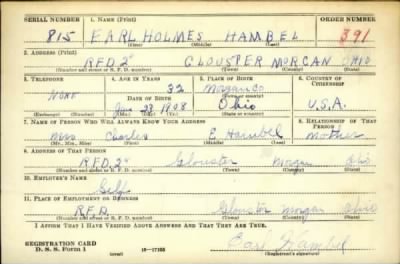 SERIAL NUMBER 1. NAME (Print) ORDER NUMBER
815 EARL HOLMES HAMBEL 391
(First) (Middle) (Last)
2. ADDRESS (Print)
R.F.D. 2 GLOUSTER MORGAN OHIO
(Number and street or R. F. D. number) (Town) (County) (State)
3. TELEPHONE 4. AGE IN YEARS 5. PLACE OF BIRTH 6. COUNTRY OF CITIZENSHIP
32 Morgan Co
NONE DATE OF BIRTH (Town or county)
1908 Ohio U.S.A.
(Mo.) (Day) (Yr.) (State or country)
7. NAME OF PERSON WHO WILL ALWAYS KNOW YOUR ADDRESS 8. RELATIONSHIP OF THAT PERSON
Mrs Charles E Hambel Mother
(Mr., Mrs., Miss) (First) (Middle) (Last)
9. ADDRESS OF THAT PERSON
R.F.D. 2 Glouster Morgan Ohio
(Number and street or R. F. D. number) (Town) (County) (State)
10. EMPLOYER'S NAME
Self
11. PLACE OF EMPLOYMENT OR BUSINESS
R.F.D. Glouster Morgan Ohio
(Number and street or R. F. D. number) (Town) (County) (State)
I AFFIRM THAT I HAVE VERIFIED ABOVE ANSWERS AND THAT THEY ARE TRUE.
REGISTRATION CARD
D. S. S. Form 1 16-17105 Earl Hambel